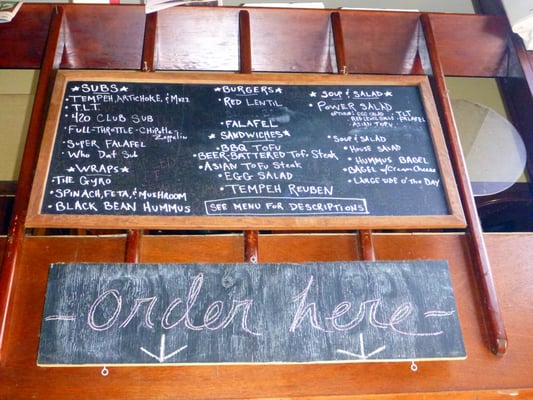 * SUBS *
• TEMPEH, ARTICHOKE, & MUZZ
• T.L.T.
• 420 CLUB SUB
• FULL-THROTTLE-CHIPOTLE-
ZEPPELIN
• SUPER FALAFEL
• WHO DAT SUB
* WRAPS *
• THE GYRO
• SPINACH, FETA, & MUSHROOM
• BLACK BEAN HUMMUS
* BURGERS *
• RED LENTIL
• FALAFEL
* SANDWICHES *
• BBQ TOFU
• BEER-BATTERED TOFU STEAK
• ASIAN TOFU STEAK
• EGG SALAD
• TEMPEH REUBEN
SEE MENU FOR DESCRIPTIONS
* SOUP & SALAD *
• POWER SALAD
OPTIONS: EGG SALAD TLT
RED LENTIL FALAFEL
ASIAN TOFU
• SOUP & SALAD
• HOUSE SALAD
• HUMMUS BAGEL
• BAGEL W/ CREAM CHEESE
• LARGE SOUP O' THE DAY
- order here -